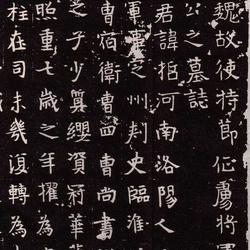 魏故使持節征虜將
公之墓誌
君諱河南洛陽人
軍之州刺史臨淮
曹宿衛曹四曹尚書
之子少纂纓冠華
照重七歲之年擢為
柱在司未幾復轉為